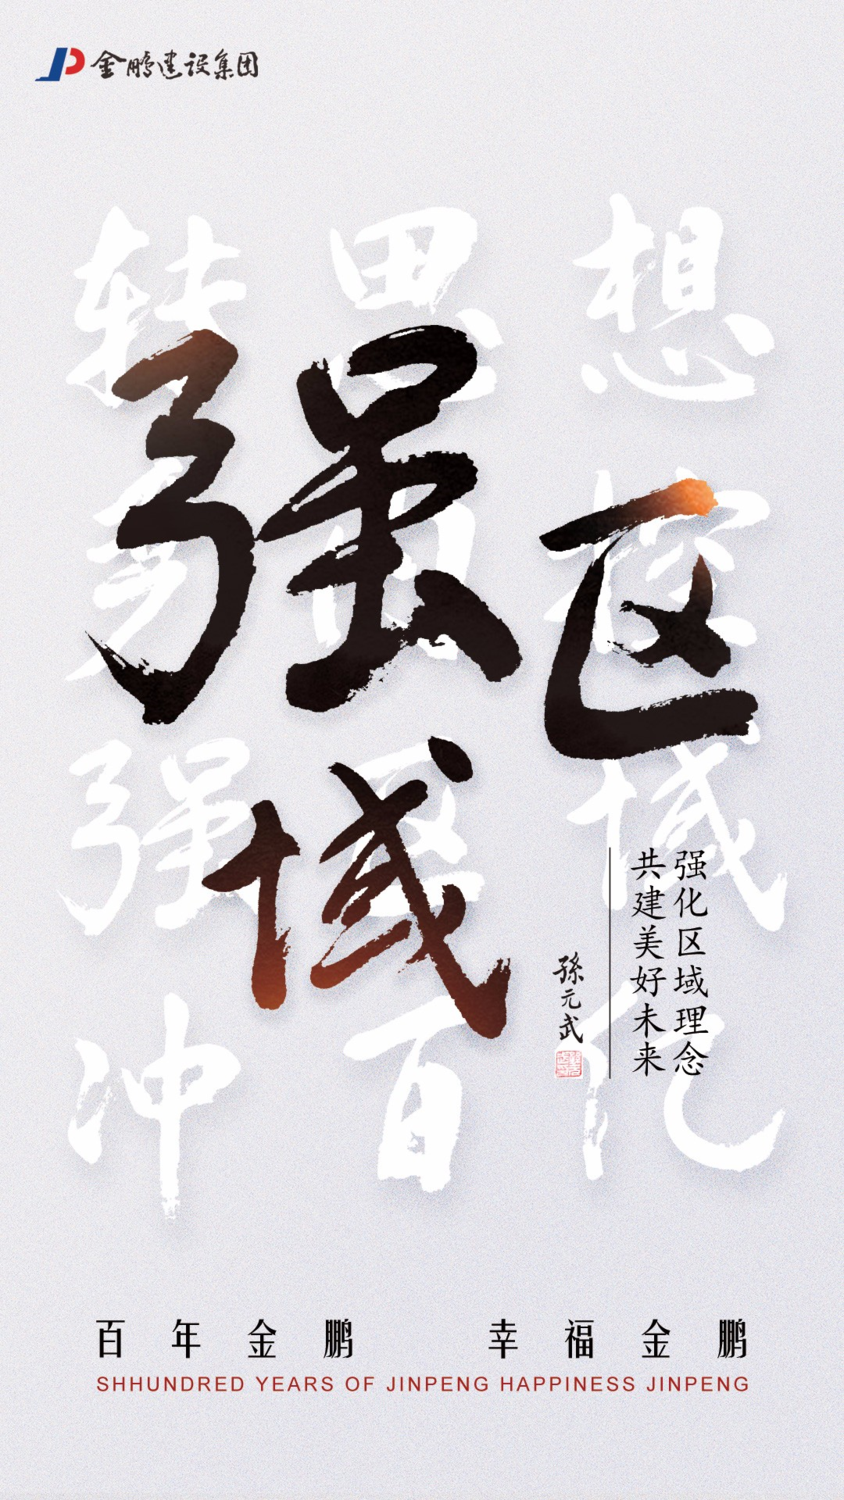 金鹏建设集团
转思想
强区域
强区域
冲百亿
强化区域理念
共建美好未来
孫元武
百年金鹏 幸福金鹏
SHHUNDRED YEARS OF JINPENG HAPPINESS JINPENG